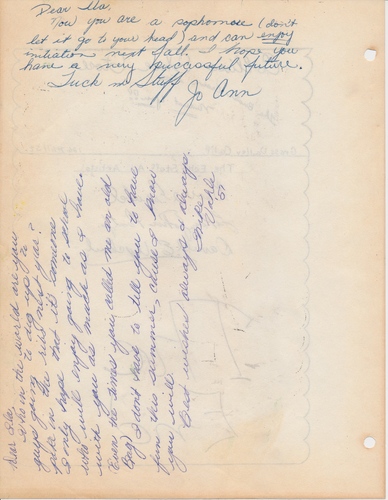 Dear Ila,
Now you are a sophomore (don't
let it go to your head) and can enjoy
initiation next fall. I hope you
have a very successful future.
Luck n Stuff
Jo Ann
Dear Ila,
Who in the world are you
guys going to drag up to
take in the ribs next year?
I only hope that it's someone
who will enjoy going to school
with you as much as I have.
(Even the times you called me an old
Bag) I don't have to tell you to have
fun this summer, cause I know
you will.
Best wishes always & always.
Mike
'57